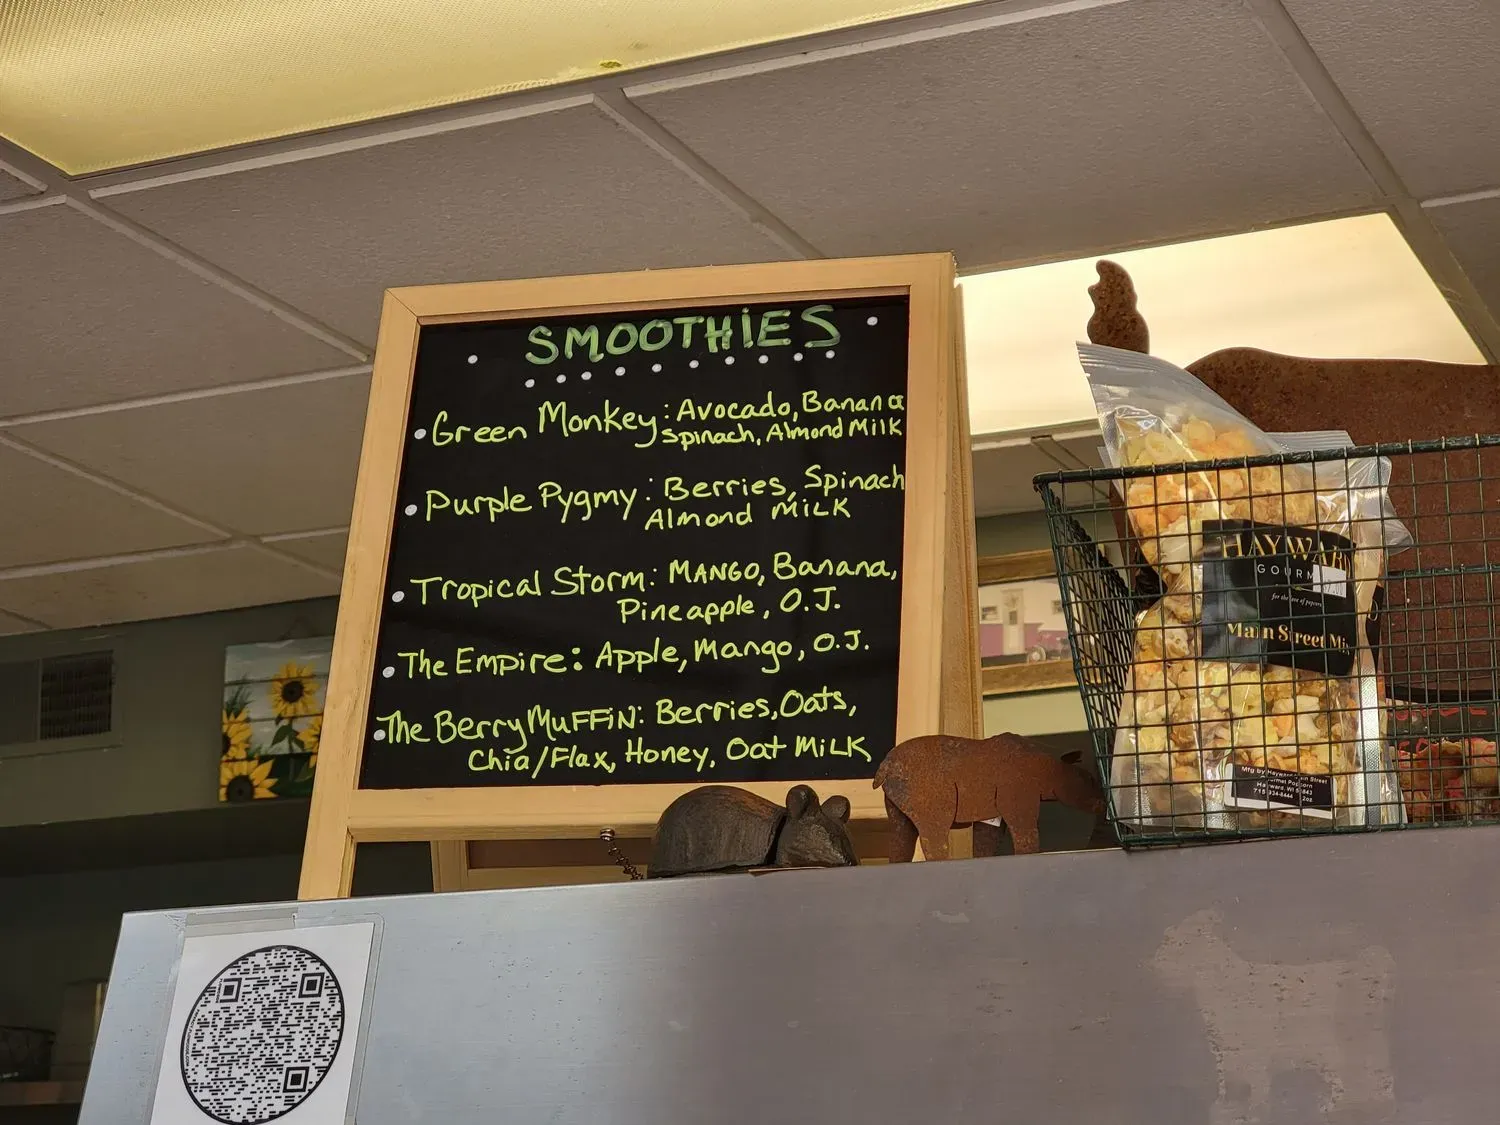 SMOOTHIES
Green Monkey: Avocado, Banana
Spinach, Almond Milk
Purple Pygmy: Berries, Spinach
Almond MiLK
Tropical Storm: MANGO, Banana,
Pineapple, O.J.
The Empire: Apple, Mango, O.J.
The Berry MuFFiN: Berries, Oats,
Chia/Flax, Honey, Oat MiLK
HAYWARD
GOURM
for the love of popcorn
Main Street Mix
Mfg by Hayward Main Street
Gourmet Popcorn
Hayward, WI 54843
715-934-8444